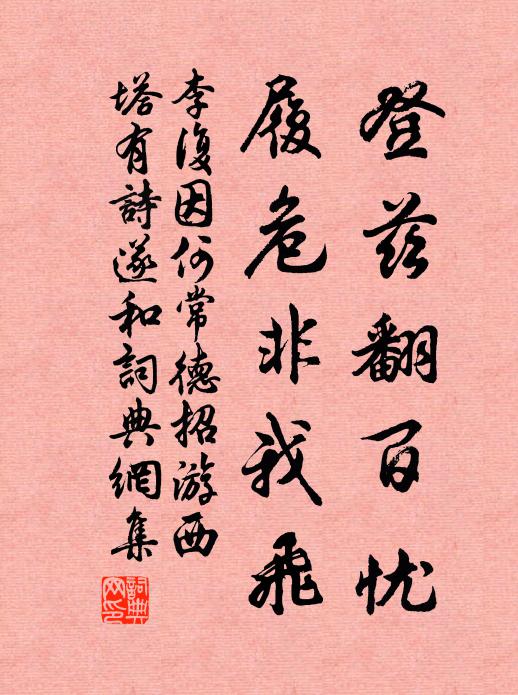 登茲翻百忧
履危非我飛
李復因何常德招游西
塔有詩遂和詞典網集
詞典網印